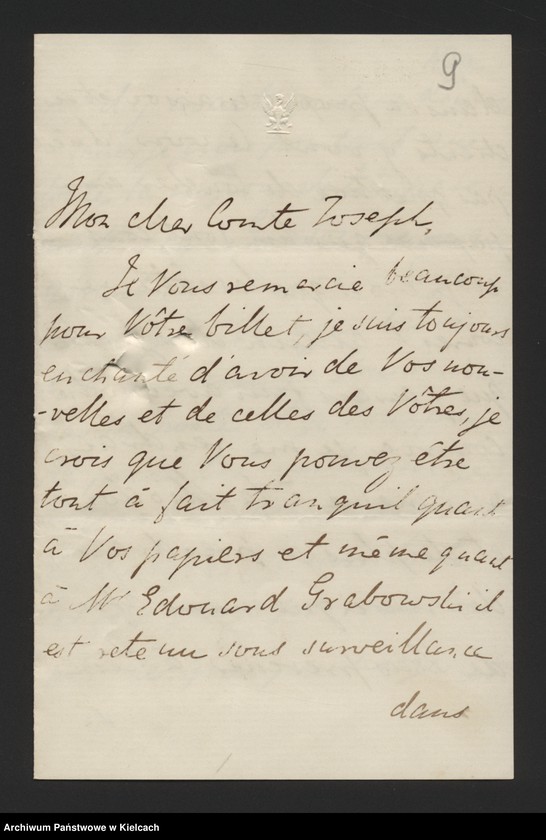 9
Mon cher Comte Joseph,
Je Vous remercie beaucoup
pour Vôtre billet, je suis toujours
enchanté d'avoir de Vos nou-
-velles et de celles des Vôtres, je
crois que Vous pouvez être
tout à fait tranquil quant
à Vos papiers et même quant
à Mr Edouard Grabowski il
est retenu sous surveillance
dans
Archiwum Państwowe w Kielcach